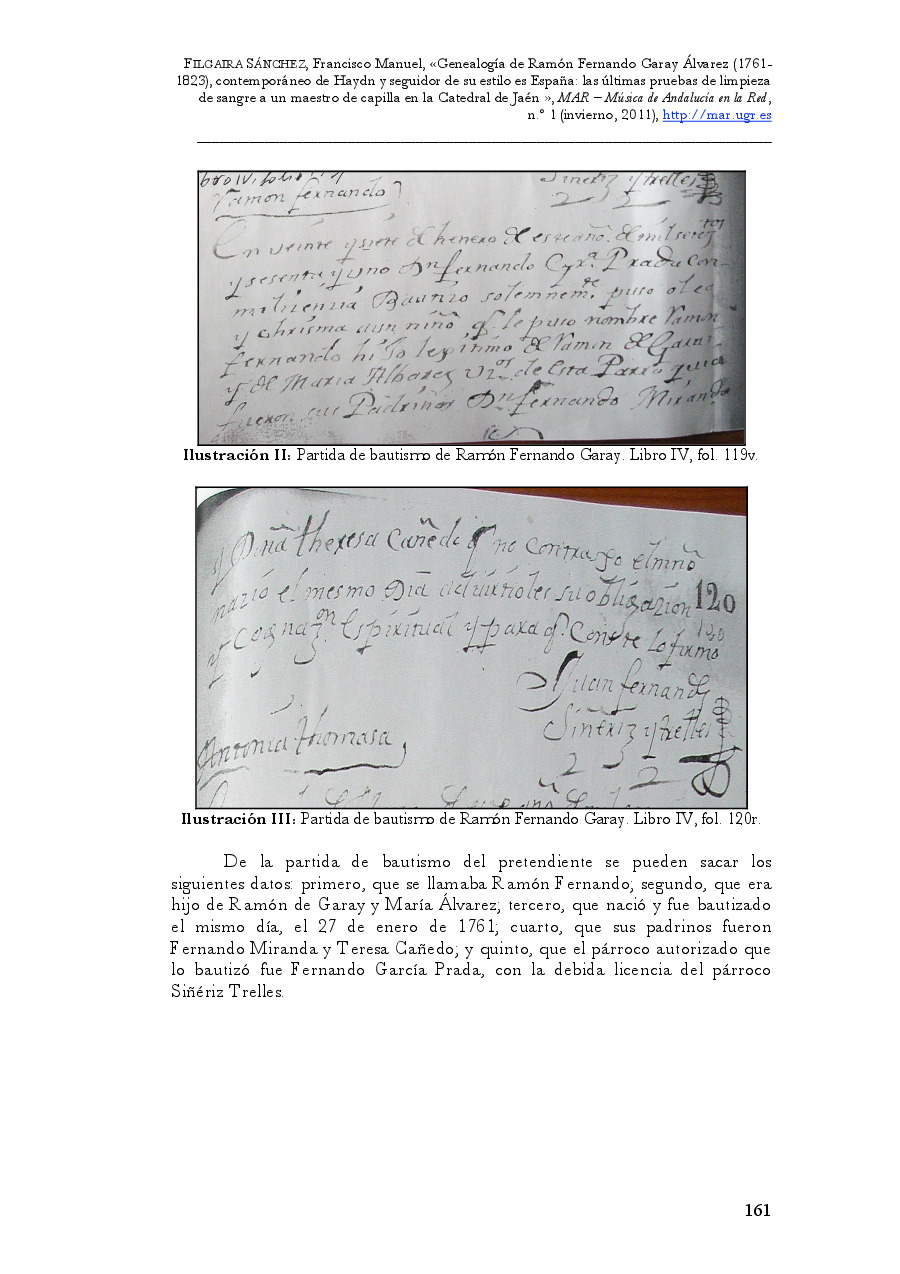 FILGAIRA SÁNCHEZ, Francisco Manuel, «Genealogía de Ramón Fernando Garay Álvarez (1761-
1823), contemporáneo de Haydn y seguidor de su estilo es España: las últimas pruebas de limpieza
de sangre a un maestro de capilla en la Catedral de Jaén », MAR – Música de Andalucía en la Red,
n.º 1 (invierno, 2011), http://mar.ugr.es
Siñeriz y trelles
Ramon fernando
2 3 2
En veinte y siete de henero de este año de mil setez.tos
y sesenta y uno Dn fernando Gra. Prada con
mi lizenzia Bautizo solemnemte. puso oleo
y chrisma a un niño q. le puso nombre Ramon
fernando hiJo legitimo de Ramon de Garai
y de Maria Albarez vzos de esta Parra.
fueron sus Padrinos Dn fernando Miranda
Ilustración II: Partida de bautismo de Ramón Fernando Garay. Libro IV, fol. 119v.
y Dñã theresa Cañedo q no contrajo el niño
nazio el mesmo Dia advirtioles su obligazion 120
y Cognazon. Espiritual y para q. Conste lo firmo
Juan fernandz
Siñeriz y trelles
Antonia thomasa
2 3 2
Ilustración III: Partida de bautismo de Ramón Fernando Garay. Libro IV, fol. 120r.
De la partida de bautismo del pretendiente se pueden sacar los
siguientes datos: primero, que se llamaba Ramón Fernando; segundo, que era
hijo de Ramón de Garay y María Álvarez; tercero, que nació y fue bautizado
el mismo día, el 27 de enero de 1761; cuarto, que sus padrinos fueron
Fernando Miranda y Teresa Cañedo; y quinto, que el párroco autorizado que
lo bautizó fue Fernando García Prada, con la debida licencia del párroco
Siñériz Trelles.
161